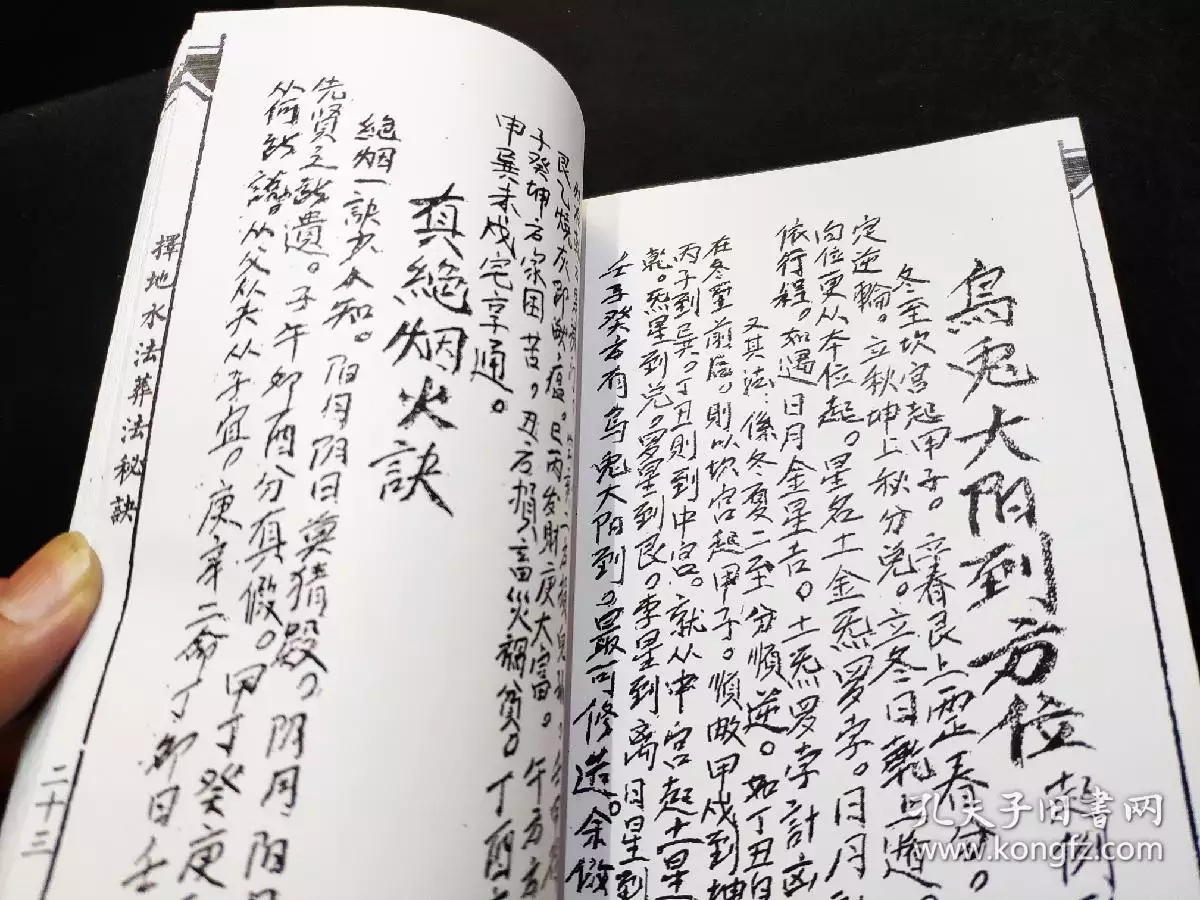 乌兎大阳到方位 起例
冬至坎宫起甲子。立春艮上
定逆輪。立秋坤上秋分兌。立冬日乾
向位更从本位起。星名土金炁罗孛。日月
依行程。如遇日月金星吉。土炁罗孛計凶
又其法。係冬夏二至分順逆。如丁丑日
在冬至前后。則以坎宫起甲子。順
丙子到巽。丁丑則到中宫。就从中宫起土星
乾。炁星到兌。罗星到艮。孛星到离日星到
壬子癸方有乌兎大阳到。最可修造。余
艮乙燒灰即
子癸坤方家困苦。丑方損畜災禍貧。丁酉
申巽未戍宅享通。
真絕烟火訣
絕烟一訣少人知。阳月阴日莫猜疑。阴月阳
先贤立
遗。子午卯酉分真假。甲丁癸庚
从父从夫从子宜。庚辛二命丁卯日壬
擇地水法葬法秘訣
二十三
孔夫子旧書网
www.kongfz.com